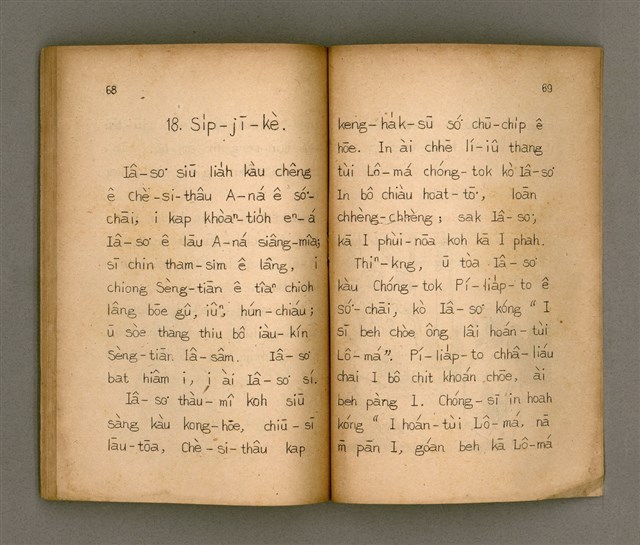 68
18. Si̍p-jī-kè.
Iâ-so͘ siū lia̍h kàu chêng
ê Chè-si-thâu A-ná ê só͘-
chāi, i kap khòaⁿ-tio̍h eⁿ-á
Iâ-so͘ ê lāu A-ná siâng-mîa;
sī chin tham-sim ê lâng, i
chiong Sèng-tiān ê tîaⁿ chioh
lâng bōe gû, iûⁿ, hún-chiáu;
ū sòe thang thiu bô iàu-kín
Sèng-tiān lâ-sâm. Iâ-so͘
bat hiâm i, i ài Iâ-so͘ sí.
Iâ-so͘ thàu-mî koh siū
sàng kàu kong-hōe, chiū-sī
lāu-tōa, Chè-si-thâu kap
69
keng-ha̍k-sū só͘ chū-chip ê
hōe. In ài chhē lí-iû thang
tùi Lô-má chóng-tok kò Iâ-so͘
In bô chiàu hoat-tō͘, loān
chhèng-chhèng; sak Iâ-so͘,
kā I phùi-nōa koh kā I phah.
Thiⁿ-kng, ū tòa Iâ-so͘
kàu Chóng-tok Pí-lia̍p-to ê
só͘-chāi, kò Iâ-so͘ kóng "I
sī beh chòe ông lâi hoán-tùi
Lô-má". Pí-lia̍p-to chhâ-liáu
chai I bô chit khoán chōe, ài
beh pàng I. Chóng-sī in hoah
kóng "I hoán-tùi Lô-má, nā
m̄ pān I, góan beh kā Lô-má